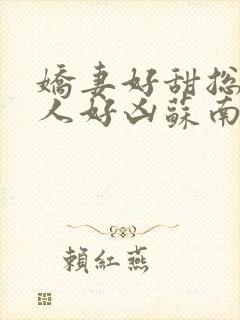 嬌妻好甜总
人好凶蘇南
賴紅燕